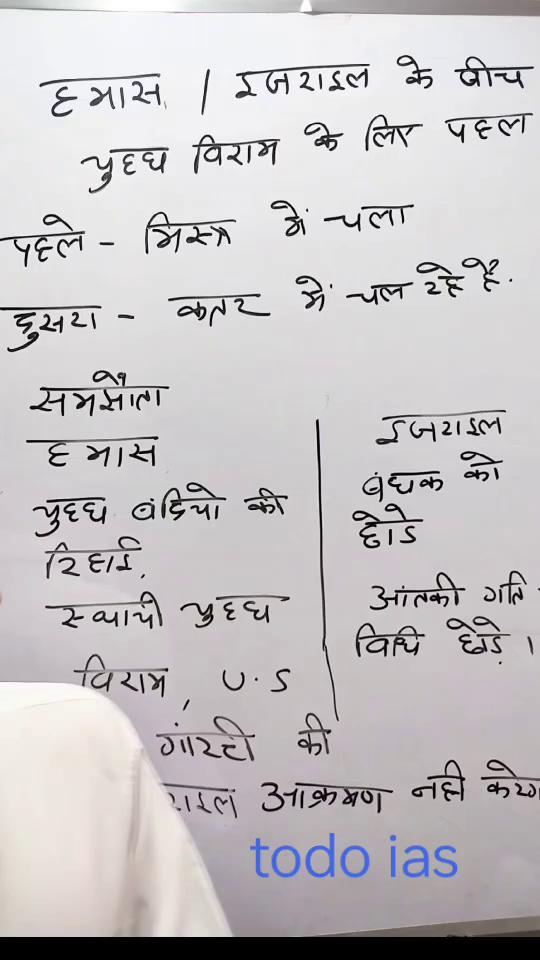 हमास / इजराइल के बीच
युद्ध विराम के लिए पहल
पहले - मिस्त्र में चला
दुसरा - कतर में चल रहे है.
समझौता
हमास
युद्ध बंदियो की
रिहाई.
स्थायी युद्ध
विराम, U.S
गांरटी की
राइल आक्रमण नही करेगा
इजराइल
बंधक को
छोडे
आंतकी गति -
विधि छोडे ।
todo ias